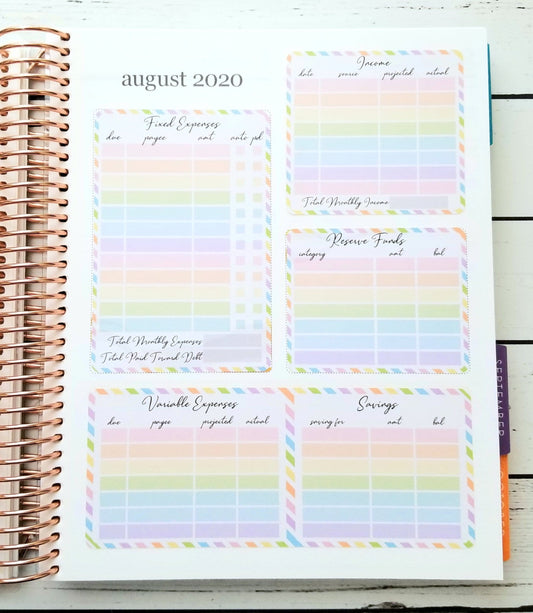 august 2020
Fixed Expenses
due payee amt auto pd
Total Monthly Expenses
Total Paid Toward Debt
Income
date source projected actual
Total Monthly Income
Reserve Funds
category amt bal
Variable Expenses
due payee projected actual
Savings
saving for amt bal
SEPTEMBER